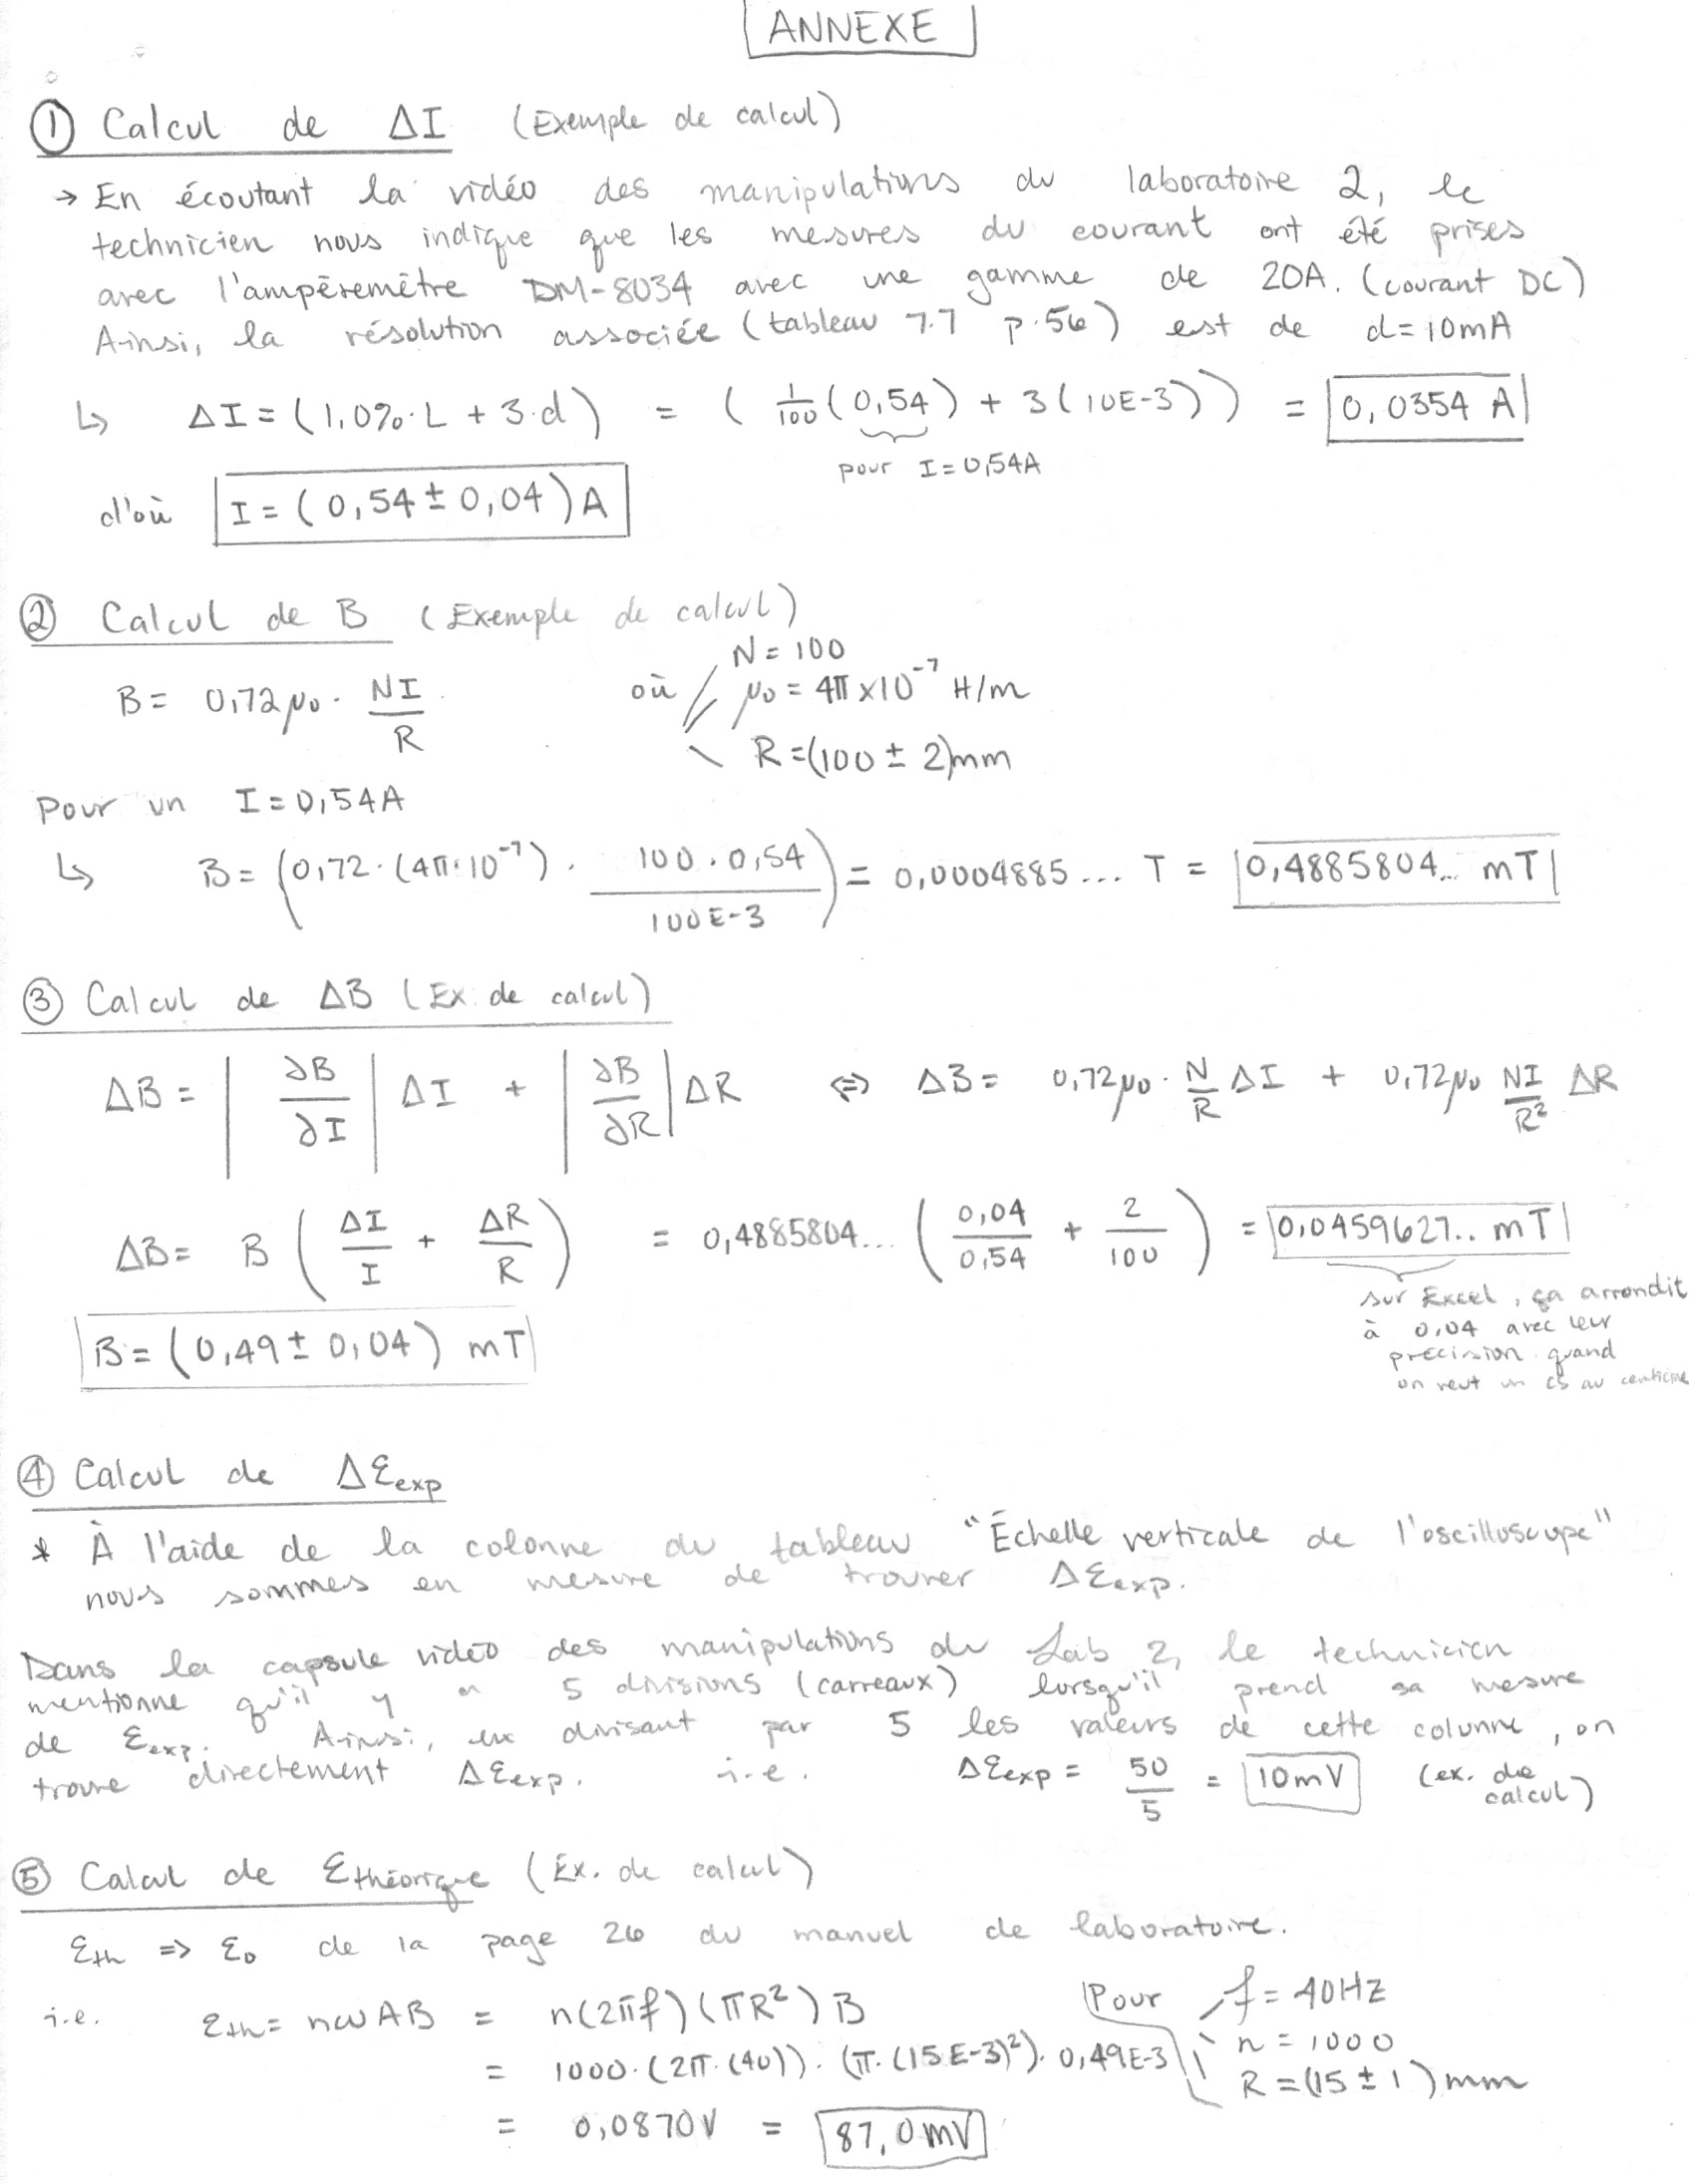 ANNEXE
① Calcul de ΔI (Exemple de calcul)
→ En écoutant la vidéo des manipulations du laboratoire 2, le
technicien nous indique que les mesures du courant ont été prises
avec l'ampèremètre DM-8034 avec une gamme de 20A. (courant DC)
Ainsi, la résolution associée (tableau 7.7 p.56) est de d=10mA
↳ ΔI = (1,0%·L + 3·d) = (1/100(0,54) + 3(10E-3)) = 0,0354 A
pour I=0,54A
d'où I = (0,54 ± 0,04) A
② Calcul de B (Exemple de calcul)
B = 0,72μ0 · NI/R où N = 100
μ0 = 4π×10⁻⁷ H/m
R = (100 ± 2)mm
Pour un I = 0,54A
↳ B = (0,72·(4π·10⁻⁷) · 100·0,54/100E-3) = 0,0004885... T = 0,4885804... mT
③ Calcul de ΔB (Ex. de calcul)
ΔB = |∂B/∂I| ΔI + |∂B/∂R| ΔR ⇔ ΔB = 0,72μ0 · N/R ΔI + 0,72μ0 NI/R² ΔR
ΔB = B (ΔI/I + ΔR/R) = 0,4885804... (0,04/0,54 + 2/100) = 0,0459627.. mT
sur Excel, ça arrondit
à 0,04 avec leur
précision quand
on veut un CS au centième
B = (0,49 ± 0,04) mT
④ Calcul de Δℰexp
* À l'aide de la colonne du tableau "Échelle verticale de l'oscilloscope"
nous sommes en mesure de trouver Δℰexp.
Dans la capsule vidéo des manipulations du Lab 2, le technicien
mentionne qu'il y a 5 divisions (carreaux) lorsqu'il prend sa mesure
de ℰexp. Ainsi, en divisant par 5 les valeurs de cette colonne, on
trouve directement Δℰexp. i.e. Δℰexp = 50/5 = 10mV (ex. de calcul)
⑤ Calcul de ℰthéorique (Ex. de calcul)
ℰth => ℰ0 de la page 26 du manuel de laboratoire.
i.e. ℰth = nωAB = n(2πf)(πR²)B Pour f = 40Hz
n = 1000
R = (15 ± 1)mm
= 1000·(2π·(40))·(π·(15E-3)²)·0,49E-3
= 0,0870V = 87,0mV